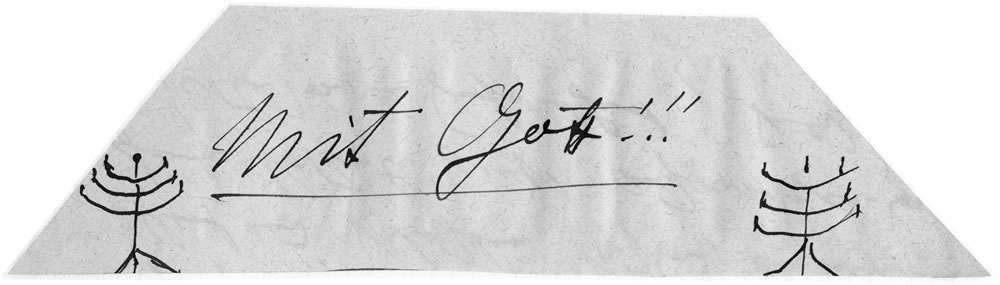 Mit Gott!!!"